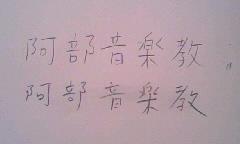 阿部音楽教
阿部音樂教